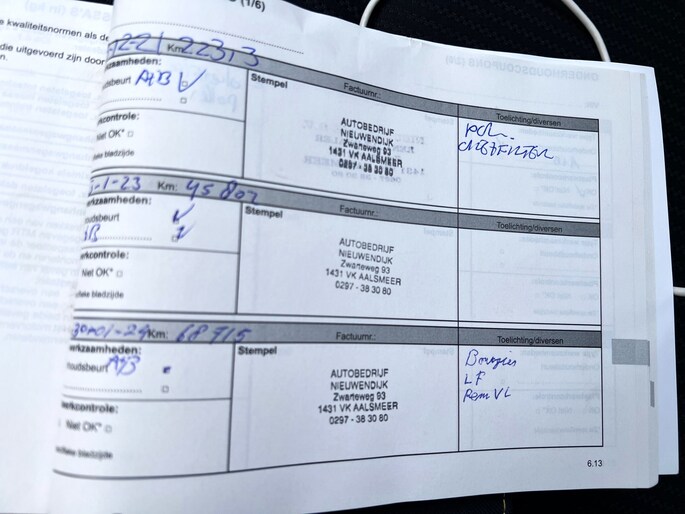 (1/6)
e kwaliteitsnormen als de
die uitgevoerd zijn door
n.
-12-21 Km: 22313
rkzaamheden:
oudsbeurt A+B
Stempel
Factuurnr.:
Toelichting/diversen
AUTOBEDRIJF
NIEUWENDIJK
Zwarteweg 93
1431 VK AALSMEER
0297 - 38 30 80
rkcontrole:
Niet OK*
fieke bladzijde
-1-23 Km: 45802
erkzaamheden:
oudsbeurt
Stempel
Factuurnr.:
Toelichting/diversen
AUTOBEDRIJF
NIEUWENDIJK
Zwarteweg 93
1431 VK AALSMEER
0297 - 38 30 80
erkcontrole:
Niet OK*
ifieke bladzijde
30-01-24 Km: 68715
erkzaamheden:
houdsbeurt A+B
Stempel
Factuurnr.:
Toelichting/diversen
Bougies
LF
Rem VL
AUTOBEDRIJF
NIEUWENDIJK
Zwarteweg 93
1431 VK AALSMEER
0297 - 38 30 80
erkcontrole:
Niet OK*
ifieke bladzijde
6.13